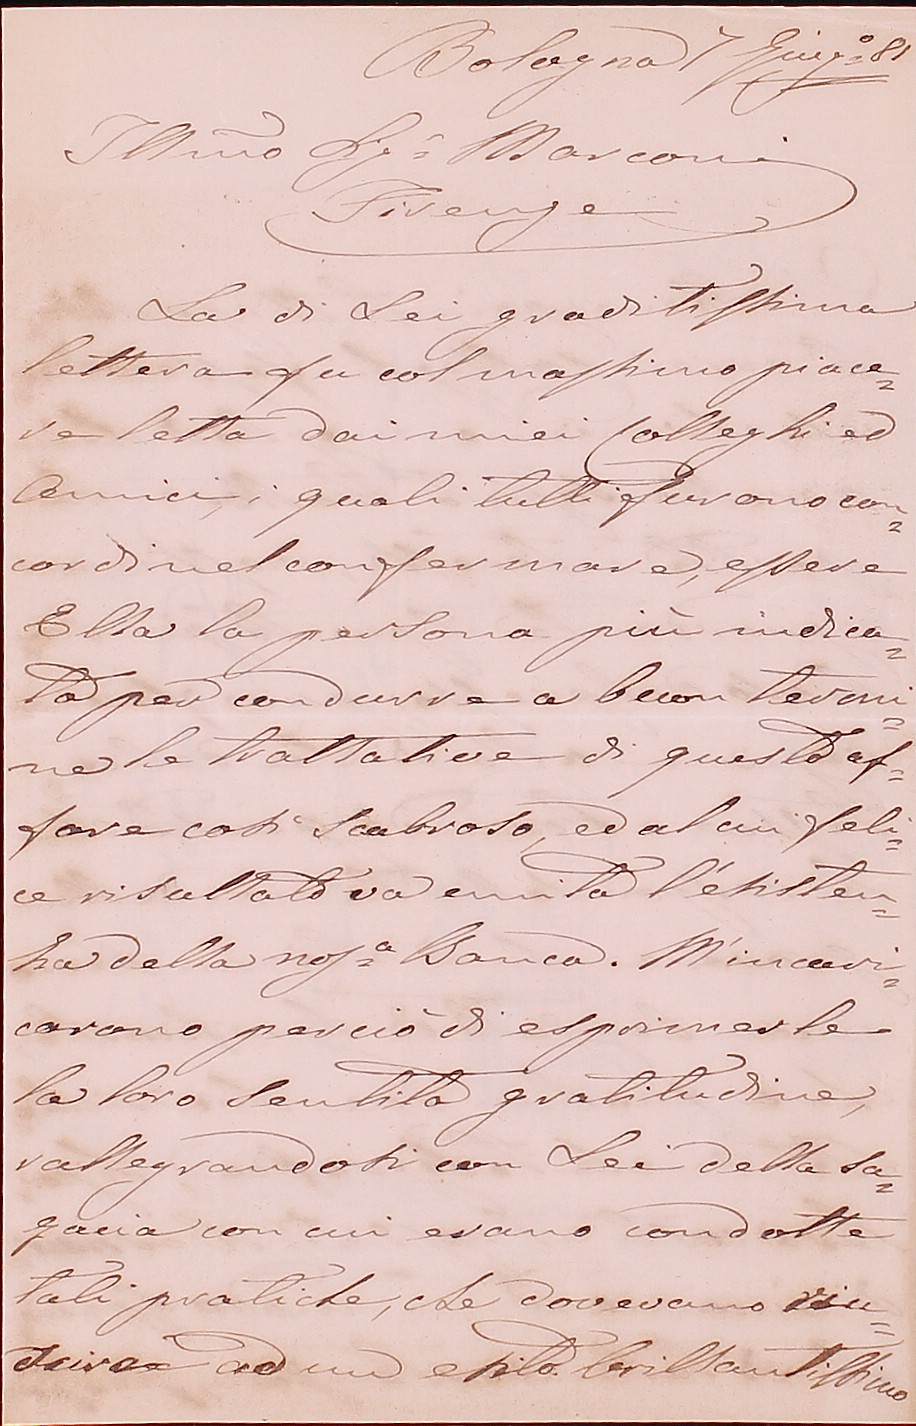 Bologna 7 Giug.º 81
Illmo Sigr Marconi
Firenze
La di Lei graditissima
lettera fu col massimo piace=
re letta dai miei Colleghi ed
Amici, i quali tutti furono con=
cordi nel confermare, essere
Ella la persona più indica=
ta per condurre a buon termi=
ne le trattative di questo af=
fare così scabroso, ed al cui feli=
ce risultato va unita l'esisten=
za della nosª Banca. M'incari=
carono perciò di esprimerle
la loro sentita gratitudine,
rallegrandosi con Lei della sa=
gacia con cui erano condotte
tali pratiche, che dovevano riu=
scire ad un esito brillantissimo